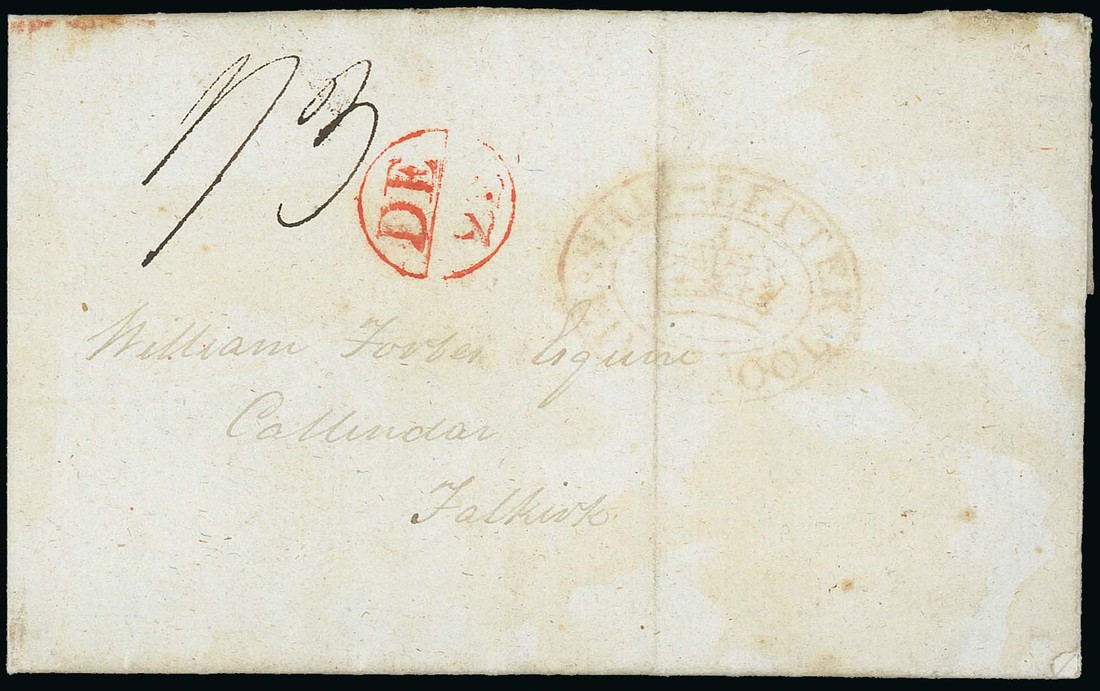 1/3
DE
SHIP-LETTER
William Forbes Esquire
Callendar
Falkirk